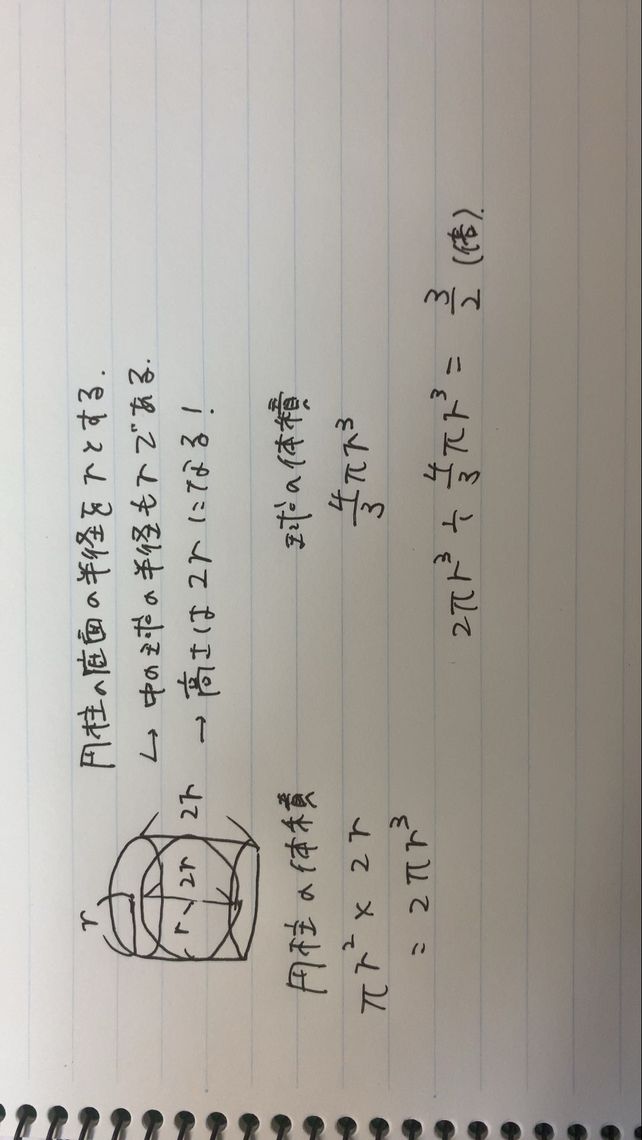 円柱の底面の半径をrとする.
↳ 中の球の半径もrである.
→ 高さは2rになる!
r
r
2r
2r
円柱の体積
πr² × 2r
= 2πr³
球の体積
4/3 πr³
2πr³ ÷ 4/3 πr³ = 3/2 (倍).